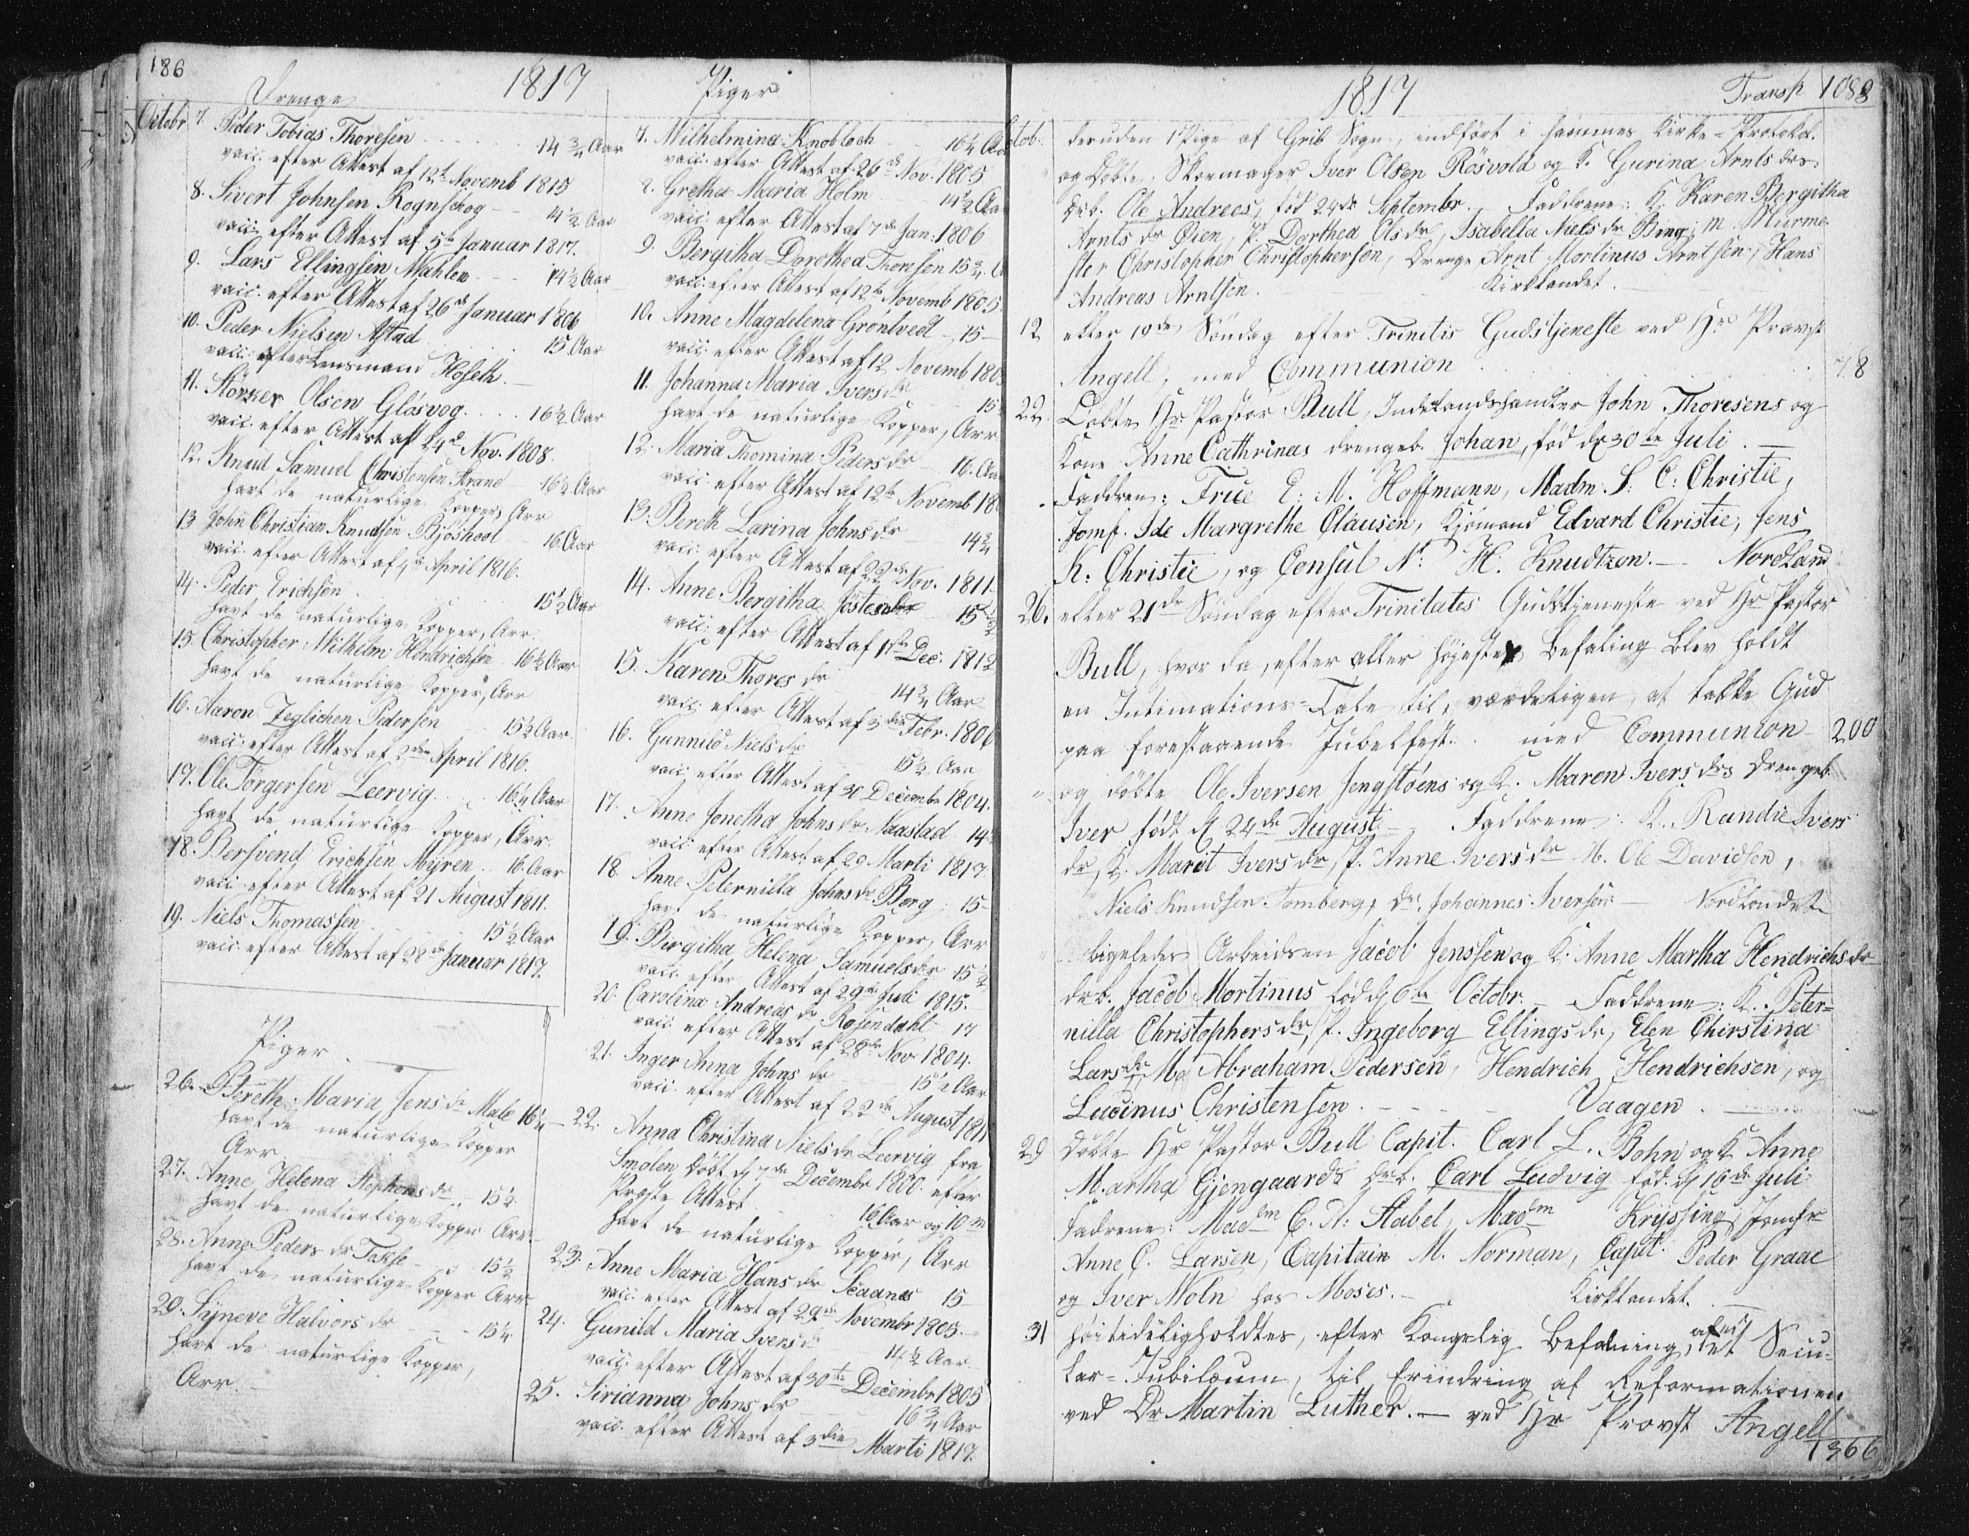 186
Drenge 1817 Piger
Octobr 7. Peder Tobias Thoresen 14 3/4 Aar
vacc. efter Attest af 12te Novemb 1815
8. Sivert Johnsen Rognskog 14 1/2 Aar
vacc. efter Attest af 5te Januar 1817.
9. Lars Ellingsen Mahlen 14 1/2 Aar
vacc. efter Attest af 26de Januar 1806
10. Peder Nielsen Astad 15 Aar
vacc. efter Lensmand Hoseth.
11. Störker Olsen Glösvog 16 1/2 Aar
vacc. efter Attest af 24de Nov. 1808.
12. Knud Samuel Christensen Strand 16 1/2 Aar
havt de naturlige Kopper, Arr
13 John Christian Knudsen Bjöshool 16 Aar
vacc. efter Attest af April 1816.
14. Peder Erichsen 15 1/2 Aar
havt de naturlige Kopper, Arr.
15. Christopher Wilhelm Hendrichsen 16 1/2 Aar
havt de naturlige Kopper, Arr
16. Aaron Zeglichen Pedersen 15 1/2 Aar
vacc. efter Attest af 2den April 1816.
17. Ole Torgersen Leervig 16 1/4 Aar
havt de naturlige Kopper, Arr.
18. Bersvend Erichsen Myren 16 Aar
vacc. efter Attest af 21 August 1811.
19. Niels Thomassen 15 1/2 Aar
vacc. efter Attest af 28de Januar 1817.
Piger
26. Bereth Maria Jens dr Male 16 1/4
havt de naturlige Kopper
Arr
27. Anne Helena Stephens dr 15 1/2
havt de naturlige Kopper Arr
28. Anne Peders dr Taxse 15 1/2
havt de naturlige Kopper Arr
29. Syneve Halvors dr 15 1/4
havt de naturlige Kopper,
Arr.
7. Wilhelmina Knobloch 16 1/4 Aar
vacc. efter Attest af 26de Nov. 1805
8. Gretha Maria Holm 14 1/2 Aar
vacc. efter Attest af 7de Jan. 1806
9. Bergitha Dorothea Thoresen 15 3/4
vacc. efter Attest af 12te Novemb 1805
10. Anne Magdelena Gröntvedt 15
vacc. efter Attest af 12 Novemb 180
11. Johanna Maria Ivers dr 15
havt de naturlige Kopper, Arr
12. Maria Thomina Peders dr 16. Aar
vacc. efter Attest af 12te Novemb 18
13. Bereth Larina Johns dr 14 3/4
vacc. efter Attest af 22de Nov. 1811.
14. Anne Bergitha 15 1/2
vacc. efter Attest af 1ste Dec. 1812
15. Karen Thores dr 14 3/4 Aar
vacc. efter Attest af 3die Febr. 1806
16. Gunnild Niels dr 15 1/2 Aar
vacc. efter Attest af 31 Decembr 1804.
17. Anne Jonetha Johns dr Naastad 14
vacc. efter Attest af 20. Marti 1817.
18. Anne Peternilla Johns dr Berg 15
havt de naturlige Kopper, Arr
19. Birgitha Helena Samuels dr 15 1/2
vacc. efter Attest af 29de Juli 1815.
20. Carolina Andreas dr Rosendahl 17
vacc. efter Attest af 28de Nov 1804.
21. Inger Anna Johns dr 15 1/2 Aar
vacc. efter Attest af 22de August 1811
22. Anna Christina Niels dr Leervig fra
Smölen, döbt d 7de Decembr 1800. efter
Præste Attest 16 Aar og 10 m
havt de naturlige Kopper, Arr
23. Anne Maria Hans dr 15
vacc. efter Attest af 29de Novembr 1805.
24. Gunild Maria Ivers dr 14 1/2 Aar
vacc. efter Attest af 30te Decembr 1805
25. Sirianna Johns dr 16 3/4 Aar
vacc. efter Attest af 3die Marti 1817.
1817 Transp 1088
Octob. desuden 1 Pige af Grib Sogn, indfört i sammes Kirke-Protokol.
og Döbte, Skoemager Iver Olsen Rösvold og K. Gurina Arnts drs
Drb. Ole Andreas, föd 24de Septembr. Faddrene: K. Karen Bergitha
Arnts dr Öien, P. Dorthea Ols dr, Isabella Niels dr Bing, M. Murme-
ster Christopher Christophersen, Drenge Arnt Martinus Arntsen, Hans
Andreas Arntsen. Kirklandet.
12 eller 19de Söndag efter Trinitis Gudstjeneste ved Hr Provst
Angell, med Communion 78
22. Döbte Hr Pastor Bull, Indelandshandler John Thoresens og
Kone Anne Cathrinas drengeb. Johan, föd d 30te Juli.
Faddren: Frue E: M. Hoffmann, Madm S: C: Christie,
Jomf. Ide Margrethe Clausen, Kjömand Edvard Christie, Jens
K: Christie, og Consul N. H. Knudtzon. Nordland
26. eller 21de Söndag efter Trinitates Gudstieneste ved Hr Pastor
Bull, hvor da, efter aller höjeste Befaling blev holdt
en Intimations-Tale til, værdeligen at takke Gud
paa forestaaende Jubelfest. med Communion 200
og döbte Ole Iversen Jengstöens og K. Maren Ivers drs Drengeb.
Iver födt d 24de August. Faddrene: K. Randie Ivers
dr, K. Marit Ivers dr, P. Anne Ivers dr M. Ole Davidsen,
Niels Knudsen Tomberg, Dr. Johannes Iversen Nordlandet
ligeledes Arbeidsm Jacob Jenssen og K. Anne Martha Hendrichs dr
drb. Jacob Mortinus föd d 6te Octobr. Faddrene: K. Peter-
nilla Christophers dr, P. Ingeborg Ellings dr, Elen Chirstina
Lars dr, M. Abraham Pedersen, Hendrich Hendrichsen, og
Lucinus Christensen. Vaagen.
29 Döbte Hr Pastor Bull Capit. Carl L. Bohn og K Anne
Martha Gjengaards Drb. Carl Ludvig föd d 16de Juli
Fadrene: Madm C. A: Stabel, Madm Kryssing, Jomfr
Anne C. Larsen, Capitain M. Norman, Capit. Peder Graae
og Iver Moln hos Moses. Kirklandet.
31 höitideligholdtes, efter Kongelig Befalning, det Secu-
lar-Jubilæum, til Erindring af Reformationen
ved Dr Martin Luther. ved Hr Provst Angell
1366